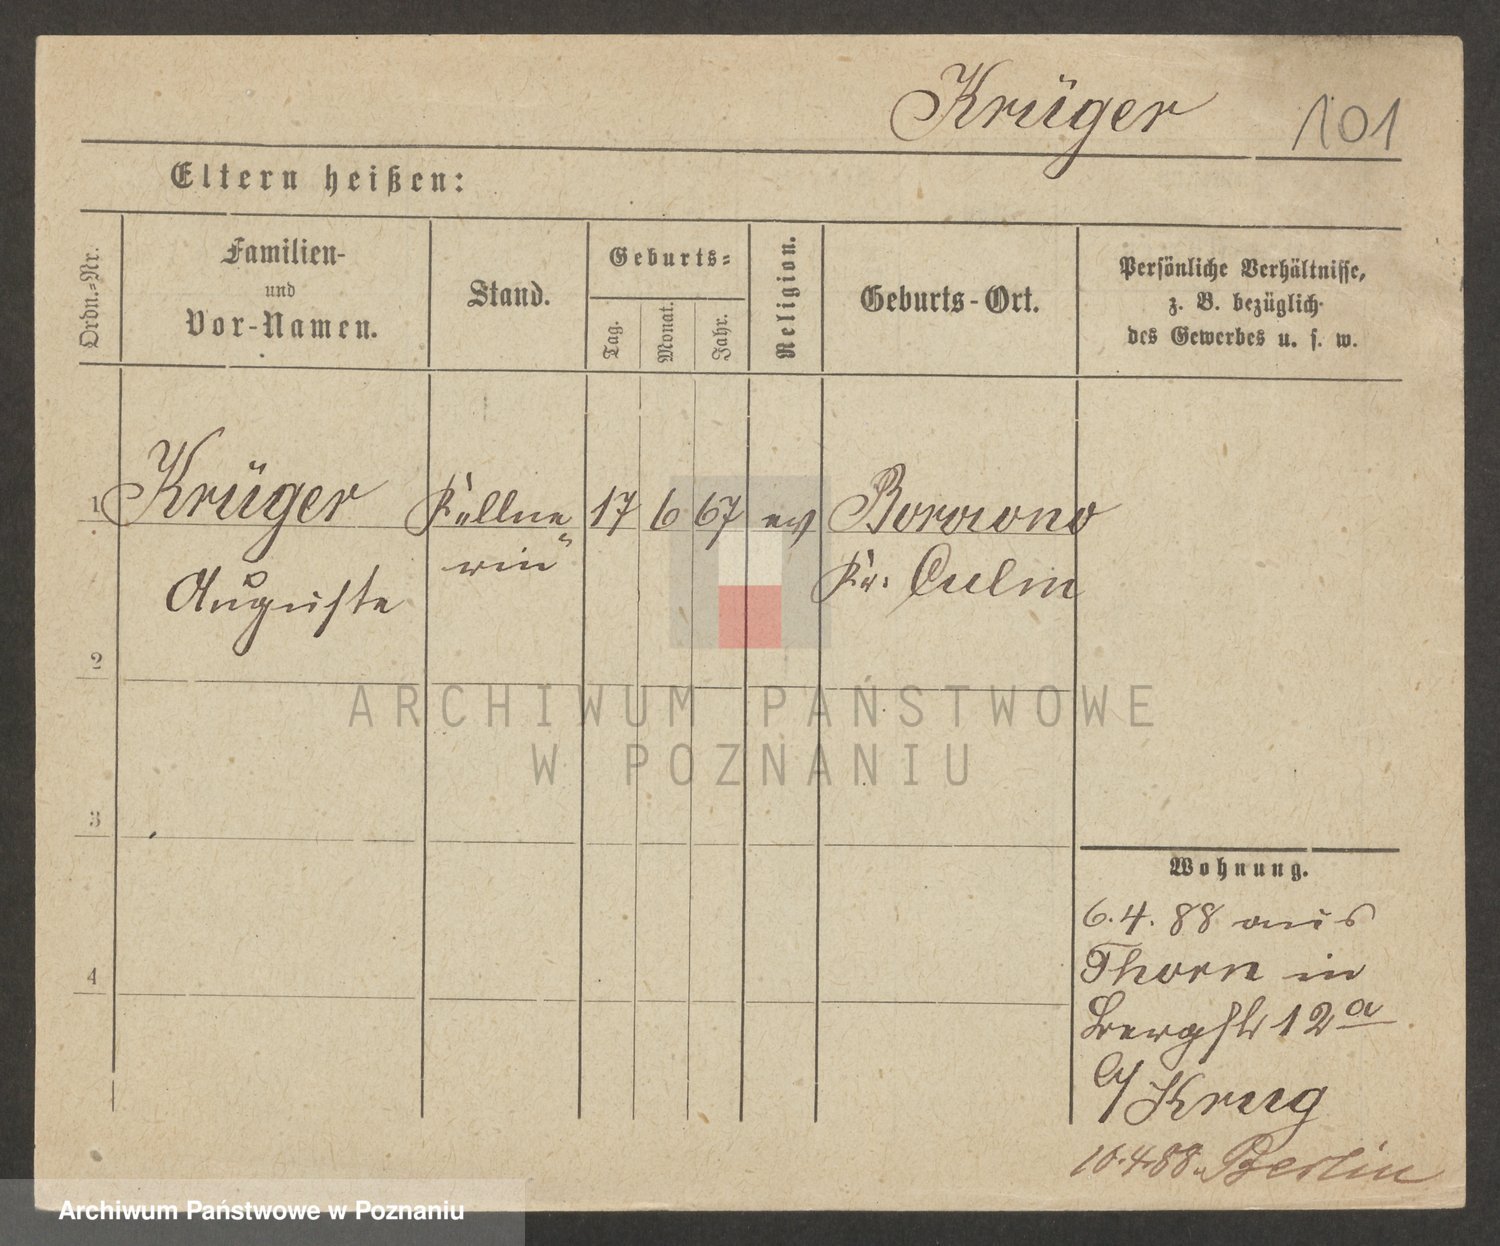 Krüger 101
Eltern heißen:
Ordn.-Nr.
Familien-
und
Vor-Namen.
Stand.
Geburts-
Tag.
Monat.
Jahr.
Religion.
Geburts-Ort.
Persönliche Verhältnisse,
z. B. bezüglich
des Gewerbes u. s. w.
1 Krüger Kellne 17 6 67 ev Borowno
rin Kr. Culm
Auguste
2
3
4
ARCHIWUM PAŃSTWOWE
W POZNANIU
Wohnung.
6.4.88 aus
Thorn in
Bergstr 12a
b/ Krug
10.4.88. Berlin
Archiwum Państwowe w Poznaniu